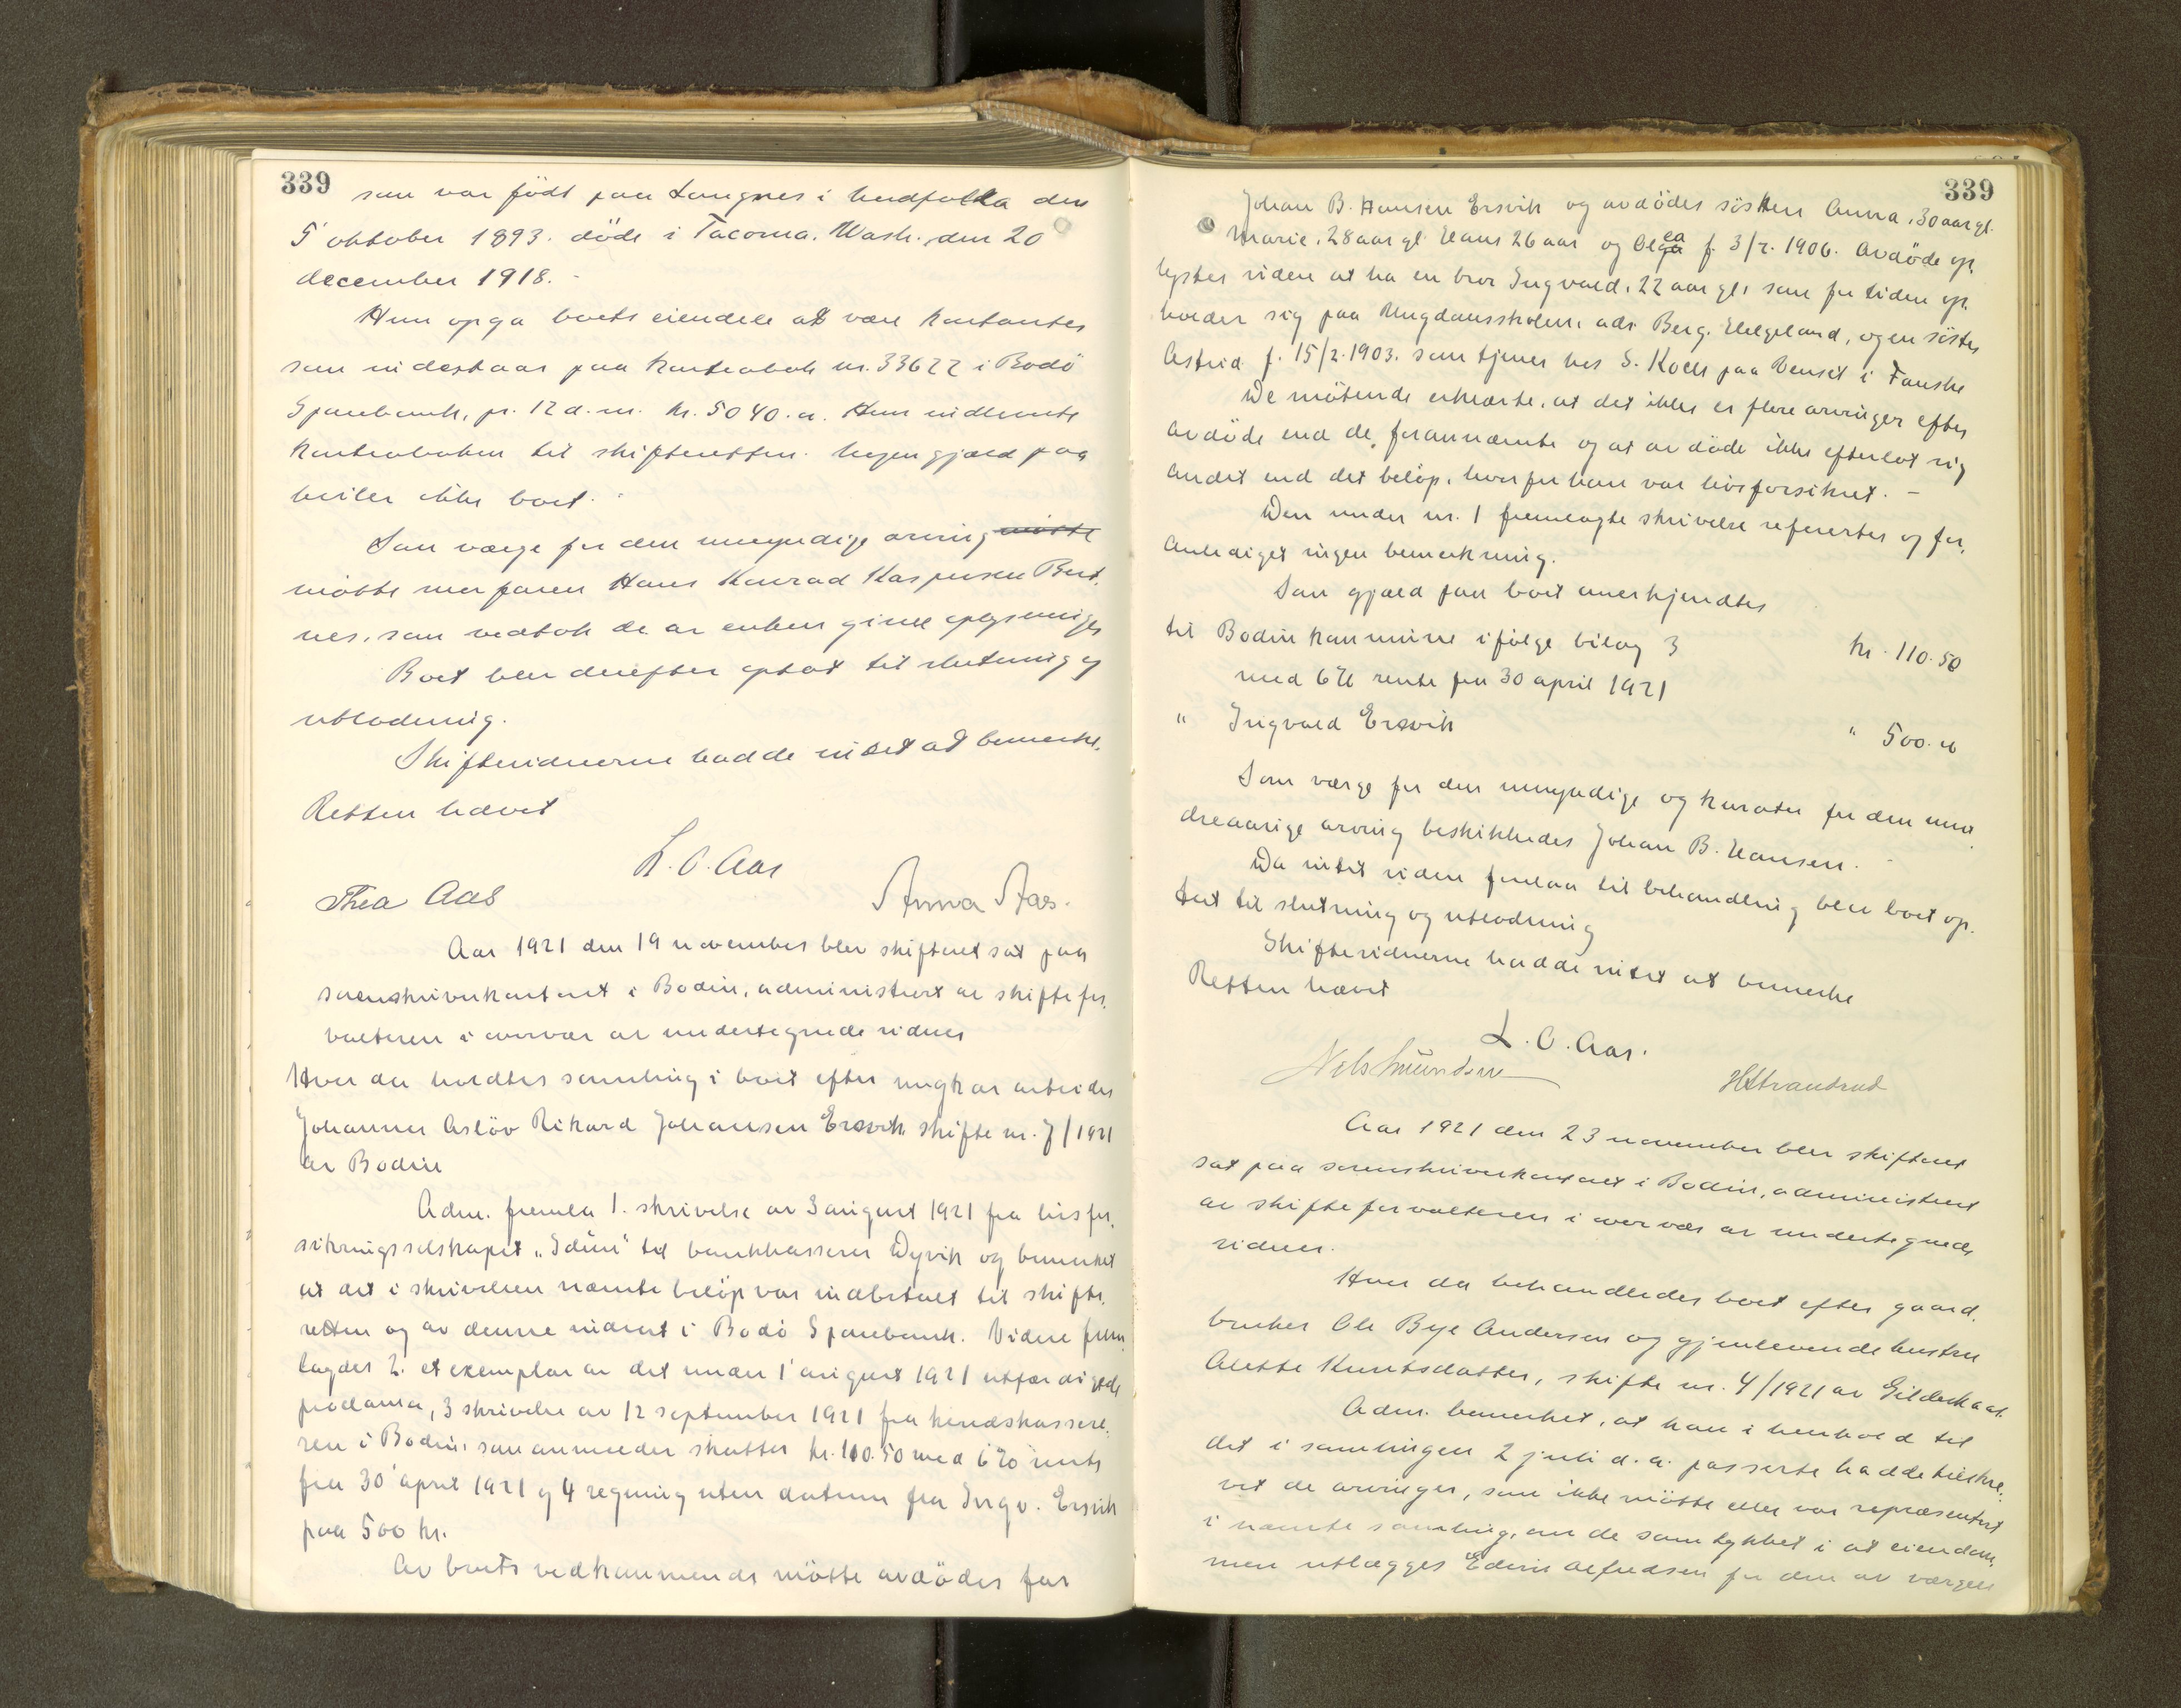 339
som var født paa Langnes i Nordfolla den
5' oktober 1893. døde i Tacoma. Wash. den 20
december 1918.-
Hun opga boets eiendele at være kontanter
som indestaar paa kontrabok nr. 33622 i Bodö
Sparebank, pr. 12 d.m. kr. 5040.
Hun indleverte
kontraboken til skifteretten. Ingen gjæld paa
hviler ikke boet.
Som værge for den umyndige arving møtte
møtte morfaren Hans Konrad Kaspersen Bert.
nes, som vedtok de av enken givne oplysninger
Boet blev derefter optat til slutning og
utlodning.
Skiftevidnerne hadde intet at bemerke.
Retten hævet
L.O. Aas
Thea Aas
Anna Aas.
Aar 1921 den 19 november blev skifteret sat paa
sorenskriverkontoret i Bodin, administrert av skiftefor.
valteren i overvær av undertegnede vidner
Hvor da holdtes samling i boet efter ungkar arbeider
Johannes Asløv Rikard Johansen Ersvik skifte nr. 7/1921
av Bodin
Adm. fremla 1. skrivelse av 3 august 1921 fra livsfor.
sikringsselskapet „Idun" til bankkasserer Dyvik og bemerket
at det i skrivelsen nævnte beløp var indbetalt til skifte.
retten og av denne indsat i Bodö Sparebank. Videre frem
lagdes 2. et exemplar av det under 1' august 1921 utfærdigede
proclama, 3 skrivelse av 12 september 1921 fra herredskassere.
ren i Bodin, som anmelder skatter kr. 110.50 med 6% rente
fra 30' april 1921 og 4 regning uten datum fra Ingv. Ersvik
paa 500 kr.
Av boets vedkommende møtte avdødes far
339
Johan B. Hansen Ersvik og avdødes søsken Anna, 30 aar gl.
Marie, 28 aar gl. Hans 26 aar og Olga ea f. 3/2. 1906. Avdøde op.
lystes videre at ha en bror Ingvald, 22 aar gl, som for tiden op.
holder sig paa Ungdomsskolen, adr. Berg. Helgeland, og en søster
Astrid f. 15/2. 1903. som tjener hos S. Koch paa Venset i Fauske
De møtende erklærte, at det ikke er flere arvinger efter
avdøde end de forannævnte og at avdøde ikke efterlot sig
andet end det beløp, hvorfor han var livsforsikret.-
Den under nr. 1 fremlagte skrivelse refertes og for,
anlediget ingen bemerkning.
Som gjæld paa boet anerkjendtes
til Bodin kommune ifølge bilag 3 kr. 110.50
med 6% rente fra 30 april 1921
" Ingvald Ersvik " 500.
Som værge for den umyndige og kurator for den min
dreaarige arving beskikkedes Johan B. Hansen.
Da intet videre forelaa til behandling blev boet op.
tat til slutning og utlodning
Skiftevidnerne hadde intet at bemerke
Retten hævet
L.O. Aas.
Nils Amundsen
H Strandrud
Aar 1921 den 23 november blev skifteret
sat paa sorenskriverkontoret i Bodin, administrert
av skifteforvalteren i overvær av undertegnede
vidner.
Hvor da behandledes boet efter gaard.
bruker Ole Bye Andersen og gjenlevende hustru
Alette Knutsdatter, skifte nr. 4/1921 av Gildeskaal.
Adm. bemerket, at han i henhold til
det i samlingen 2 juli d.a. passerte hadde tilskre.
vet de arvinger, som ikke møtte eller var repræsentert
i nævnte samling, om de samtykket i at eiendom,
men utlægges Edvin Alfredsen for den av værgen